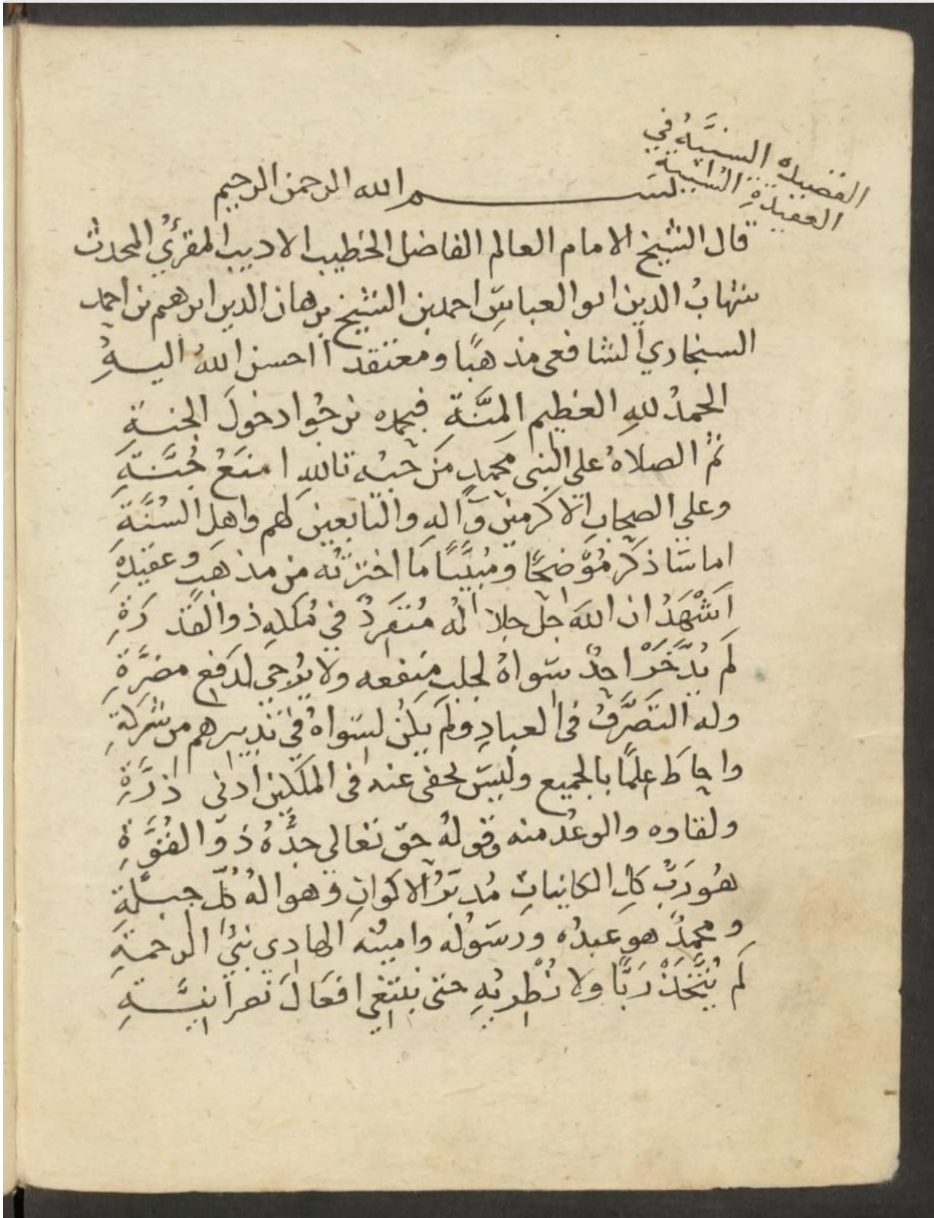 القصيدة السنية في
العقيدة السنية
بسم الله الرحمن الرحيم
قال الشيخ الامام العالم الفاضل الخطيب الاديب المقرئ المحدث
شهاب الدين ابو العباس احمد بن الشيخ برهان الدين ابرهيم بن احمد
السنجاري الشافعي مذهبًا ومعتقدا احسن الله اليه
الحمدُ للهِ العظيم المِنَّةِ فبحمده نرجوا دخولَ الجنةِ
ثم الصلاة على النبي محمدٍ مَن حبُّه تالله امنَعُ جُنَّةِ
وعلى الصحابِ الاكرمين وآلهِ والتابعين لهم واهلِ السُّنَّةِ
اما ساذكر مُوْضِحًا ومُبيِّنًا ما اخترته من مذهب وعقيدةِ
اَشْهَدُ ان اللهَ جلّ جلاله مُتفرِدٌ في مُلكِه ذو القدرةِ
لم يُدَّخَرْ احدٌ سواهُ لجلبِ منفعه ولا يُرجى لدفع مضرَّةِ
وله التصَرُّفُ في العبادِ ولم يكن لسواهُ في تدبيرهم من شركةِ
واحاطَ علمًا بالجميع وليسَ يخفى عنه في الملكين ادنى ذرَّةِ
ولقاوه والوعدُ منه وقولهُ حق تعالى جدُّهُ ذو القُوَّةِ
هُو رَبُّ كل الكاينات مُدبّرُ الاكوانِ وهو الهُ كُلّ جبلَّةِ
ومحمدٌ هو عبدُه ورسولُه وامينُه الهادي نبيُّ الرحمةِ
لم يُتَّخَذْ رَبًّا ولا نُطْريهِ حتى نبتغي افعَالَ نصرانيَّةِ